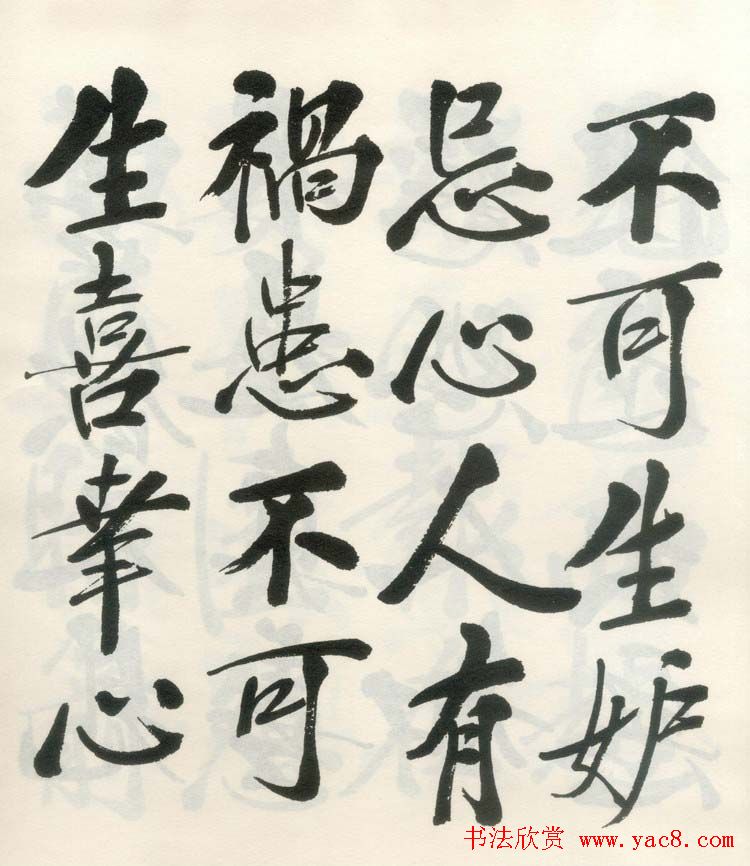 不可生妒
忌心人有
禍患不可
生喜幸心
书法欣赏 www.yac8.com